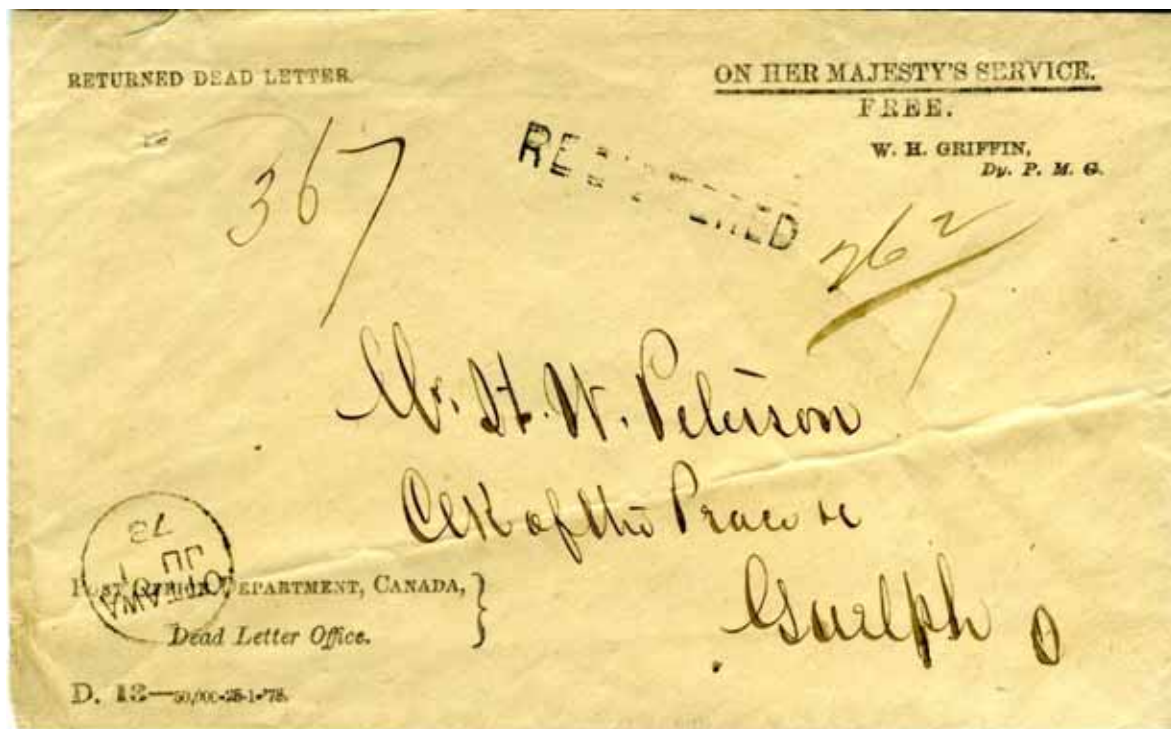 RETURNED DEAD LETTER.
ON HER MAJESTY'S SERVICE.
FREE.
W. H. GRIFFIN,
Dy. P. M. G.
367
REGISTERED
262
7
Mr. H. W. Peterson
Clk of the Peace &c
Guelph O
OTTAWA
JU 1
78
POST OFFICE DEPARTMENT, CANADA,
Dead Letter Office.
D. 13—50,000-25-1-'78.